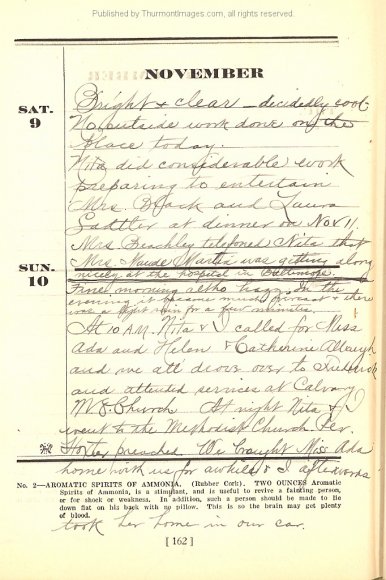 Published by ThurmontImages.com, all rights reserved.
NOVEMBER
SAT.
9
Bright & clear – decidedly cool
No outside work done on the
place today.
Nita did considerable work
preparing to entertain
Mrs. Black and Laura
at dinner on Nov 11.
Mrs Beachley telefoned Nita that
Mrs. Maude Martin was getting along
nicely at the hospital in Baltimore.
SUN.
10
Fine morning altho hazy. In the
evening it became much & there
was a light rain for a few minutes.
At 10 A.M. Nita & I called for Miss
Ada and Helen & Catherine
and we all drove over to Frederick
and attended services at Calvary
M.E. Church. At night Nita & I
went to the Methodist Church Rev.
preached. We brought Miss Ada
home with us for awhile & I afterwards
No. 2—AROMATIC SPIRITS OF AMMONIA. (Rubber Cork). TWO OUNCES Aromatic
Spirits of Ammonia, is a stimulant, and is useful to revive a fainting person,
or for shock or weakness. In addition, such a person should be made to lie
down flat on his back with no pillow. This is so the brain may get plenty
of blood.
took her home in our car.
[ 162 ]